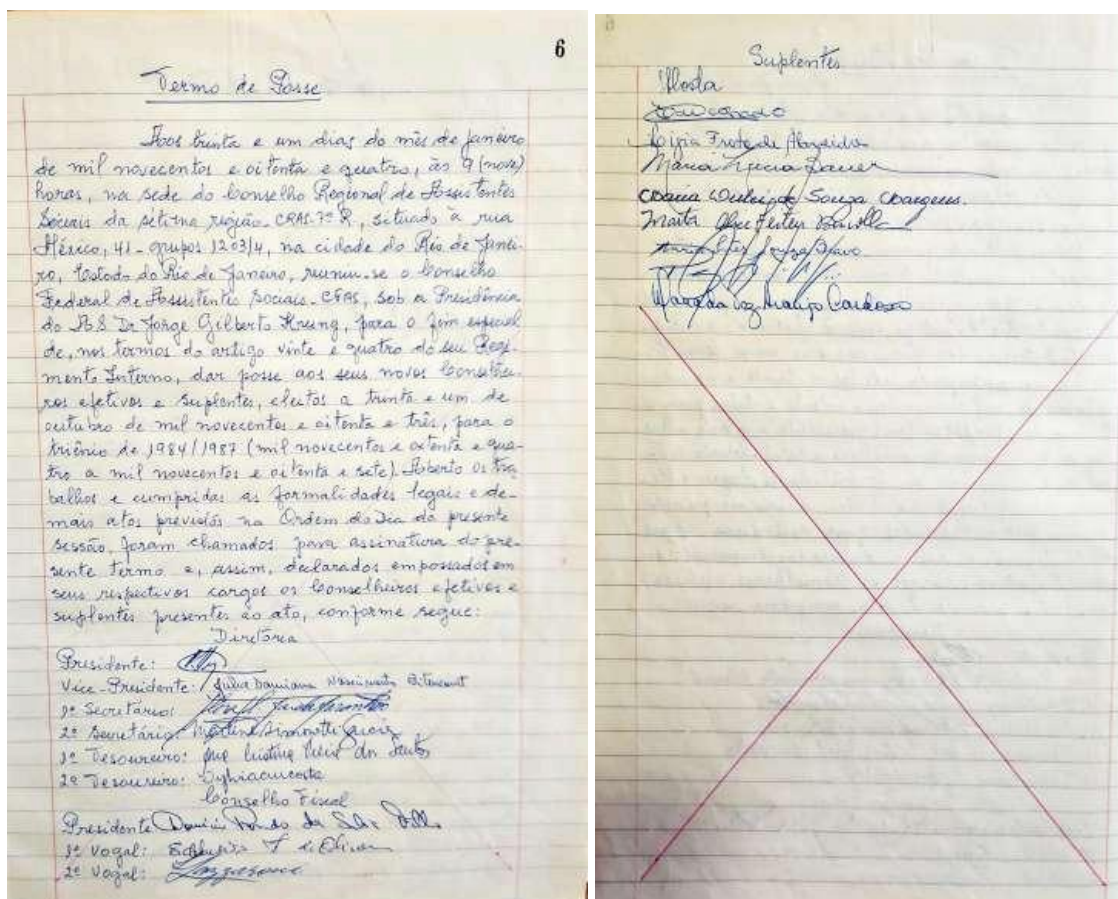 6
Termo de Posse
Aos trinta e um dias do mês de janeiro
de mil novecentos e oitenta e quatro, às 9 (nove)
horas, na sede do Conselho Regional de Assistentes
Sociais da sétima região - CRAS. 7ª R, situado à rua
México, 41 - grupos 1203/4, na cidade do Rio de Janei-
ro, Estado do Rio de Janeiro, reuniu-se o Conselho
Federal de Assistentes Sociais - CFAS, sob a Presidência
do A.S Dr Jorge Gilberto Krung, para o fim especial
de, nos termos do artigo vinte e quatro do seu Regi-
mento Interno, dar posse aos seus novos Conselhei-
ros efetivos e suplentes, eleitos a trinta e um de
outubro de mil novecentos e oitenta e três, para o
triênio de 1984/1987 (mil novecentos e oitenta e qua-
tro a mil novecentos e oitenta e sete). Aberto os tra-
balhos e cumpridas as formalidades legais e de-
mais atos previstos na Ordem do Dia da presente
sessão, foram chamados para assinatura do pre-
sente termo e, assim, declarados empossados em
seus respectivos cargos os Conselheiros efetivos e
suplentes presentes ao ato, conforme segue:
Diretoria
Presidente:
Vice-Presidente: Julia Damiana Nascimento Bitencourt
1º Secretário:
2º Secretário:
1º Tesoureiro: Ana Cristina Vieira dos Santos
2º Tesoureiro:
Conselho Fiscal
Presidente da Silva
1º Vogal:
2º Vogal:
Suplentes
Ligia de Almeida
Maria Lucia
Maria de Souza
Marta
Araujo Cardoso